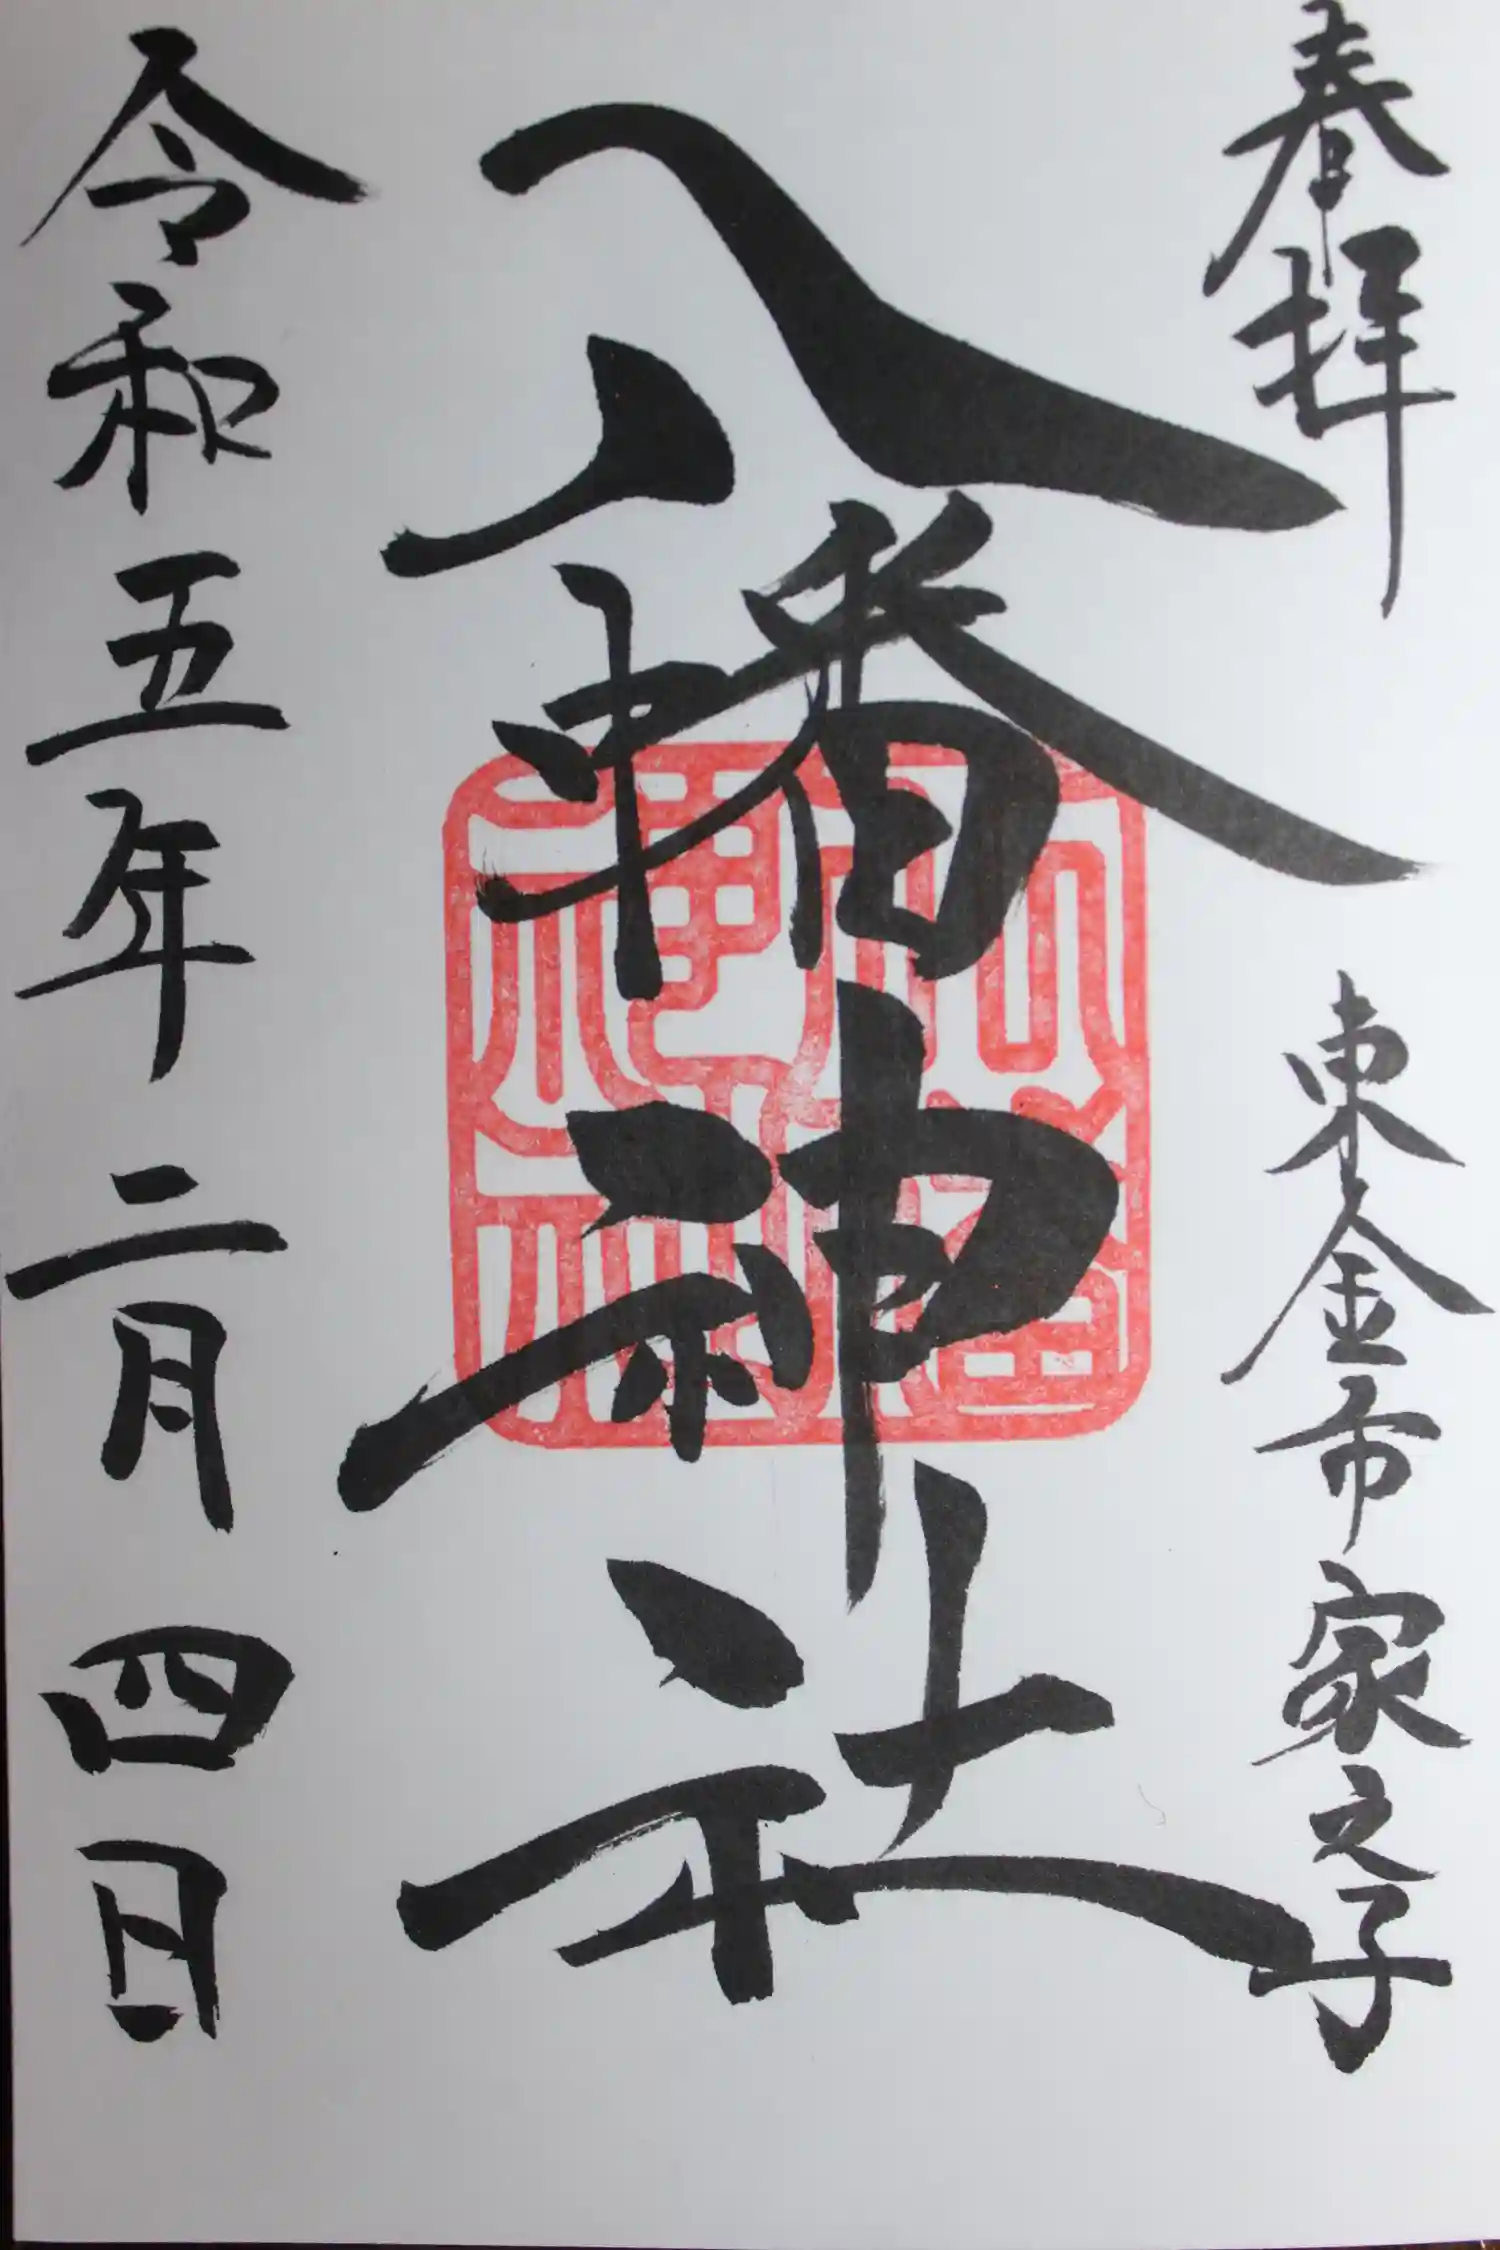 奉拝
東金市家之子
八幡神社
令和五年二月四日